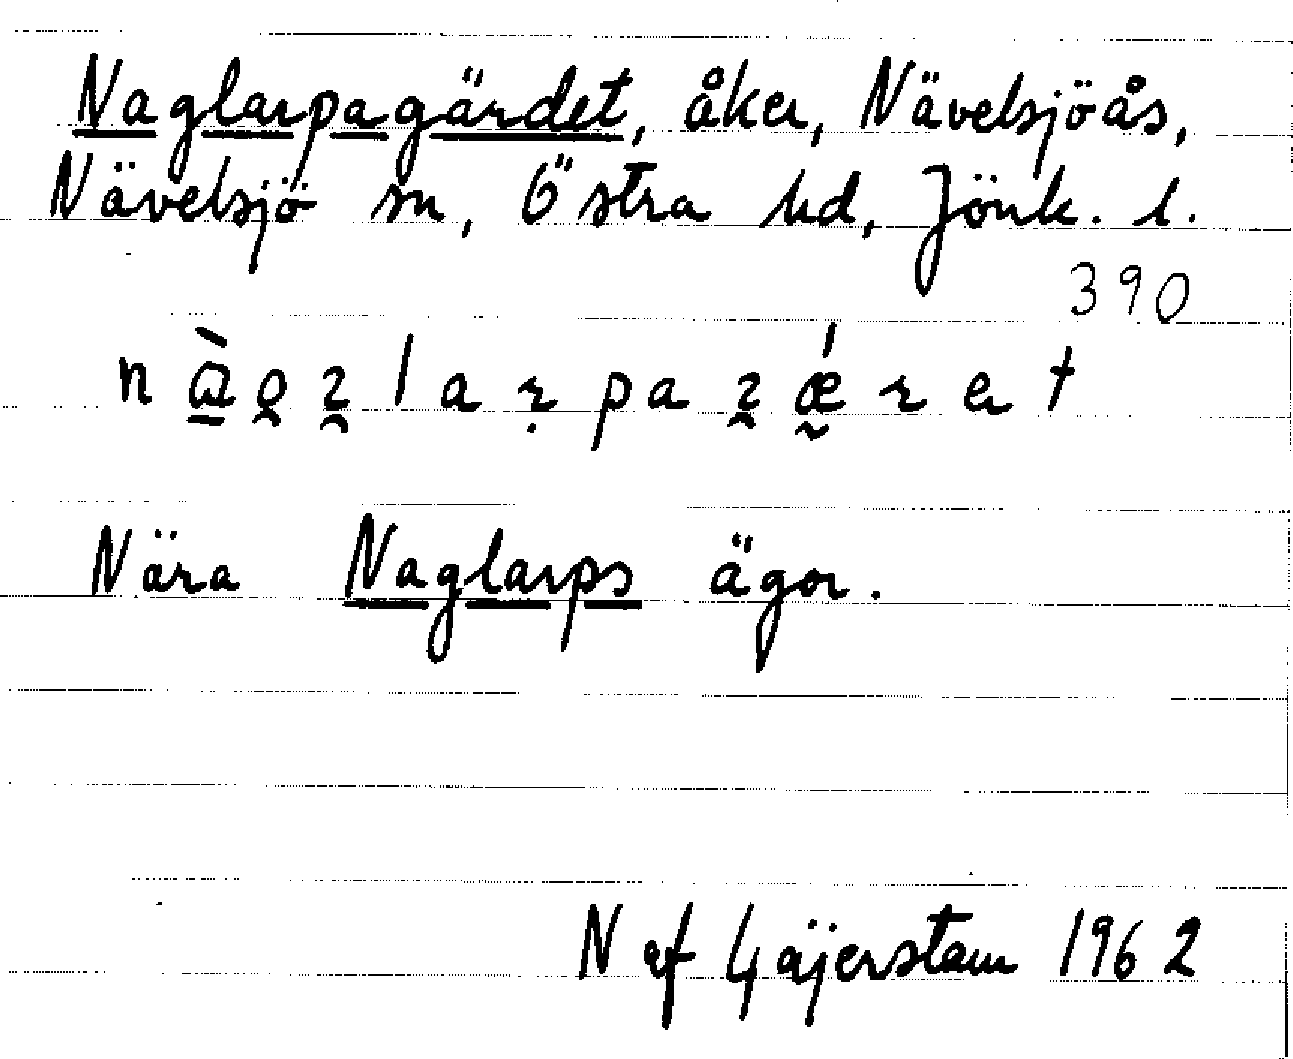 Naglarpagärdet, åker, Nävelsjöås,
Nävelsjö sn, Östra hd, Jönk. l.
390
Nära Naglarps ägor.
N af Gäijerstam 1962